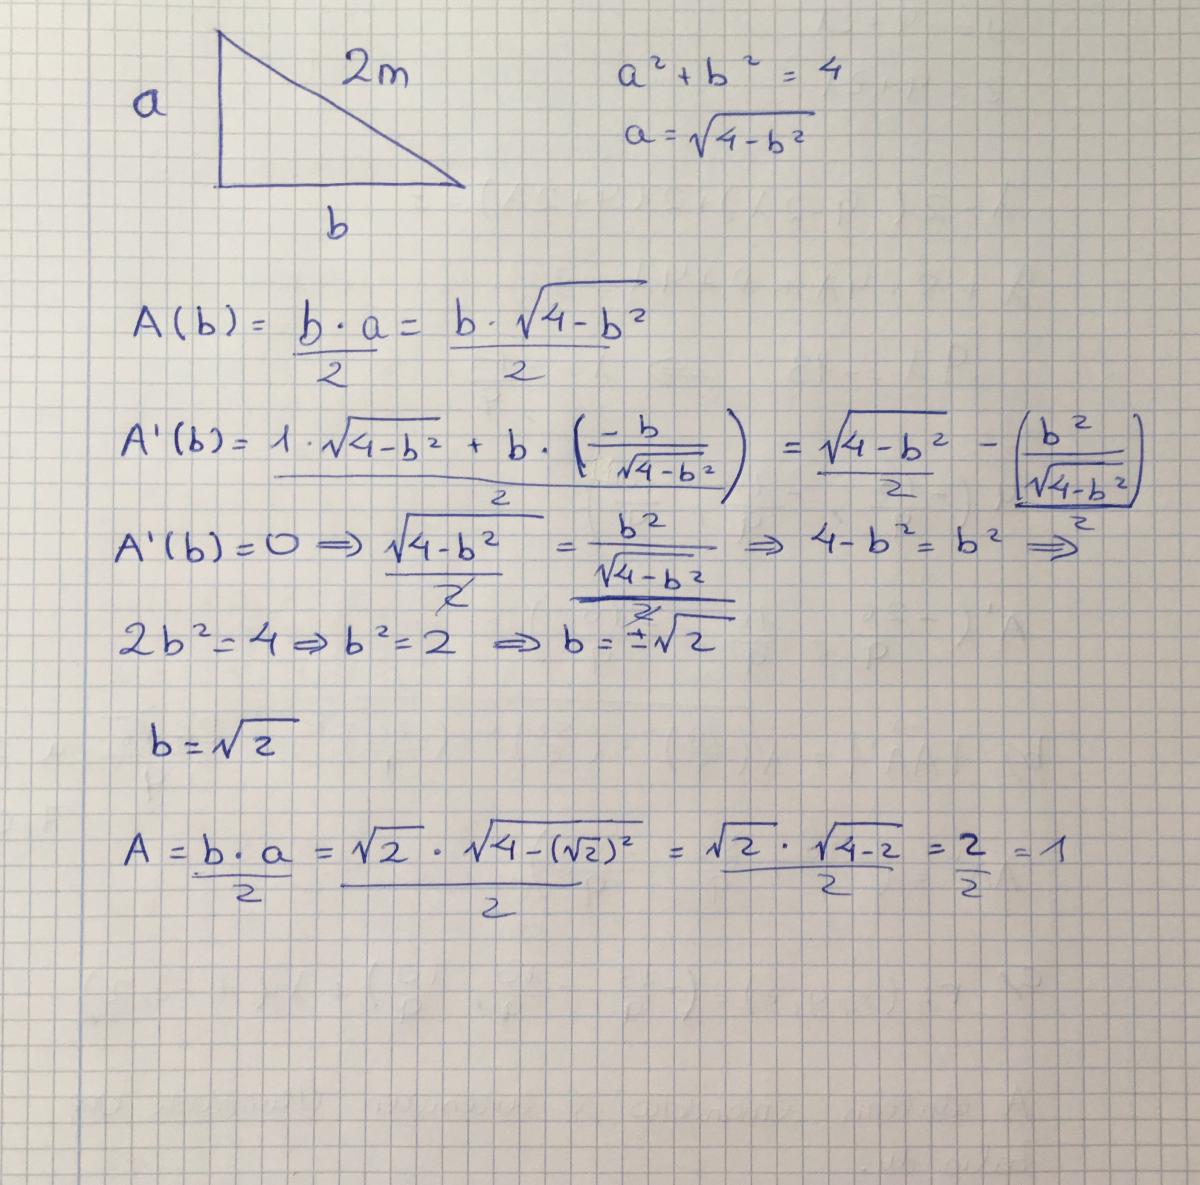 2m
a² + b² = 4
a
a = √(4-b²)
b
A(b) = (b·a)/2 = (b·√(4-b²))/2
A'(b) = (1·√(4-b²) + b·(-b/√(4-b²)))/2 = √(4-b²)/2 - (b²/√(4-b²))/2
A'(b) = 0 ⇒ √(4-b²)/2 = (b²/√(4-b²))/2 ⇒ 4-b² = b² ⇒
2b² = 4 ⇒ b² = 2 ⇒ b = ±√2
b = √2
A = (b·a)/2 = (√2·√(4-(√2)²))/2 = (√2·√(4-2))/2 = 2/2 = 1